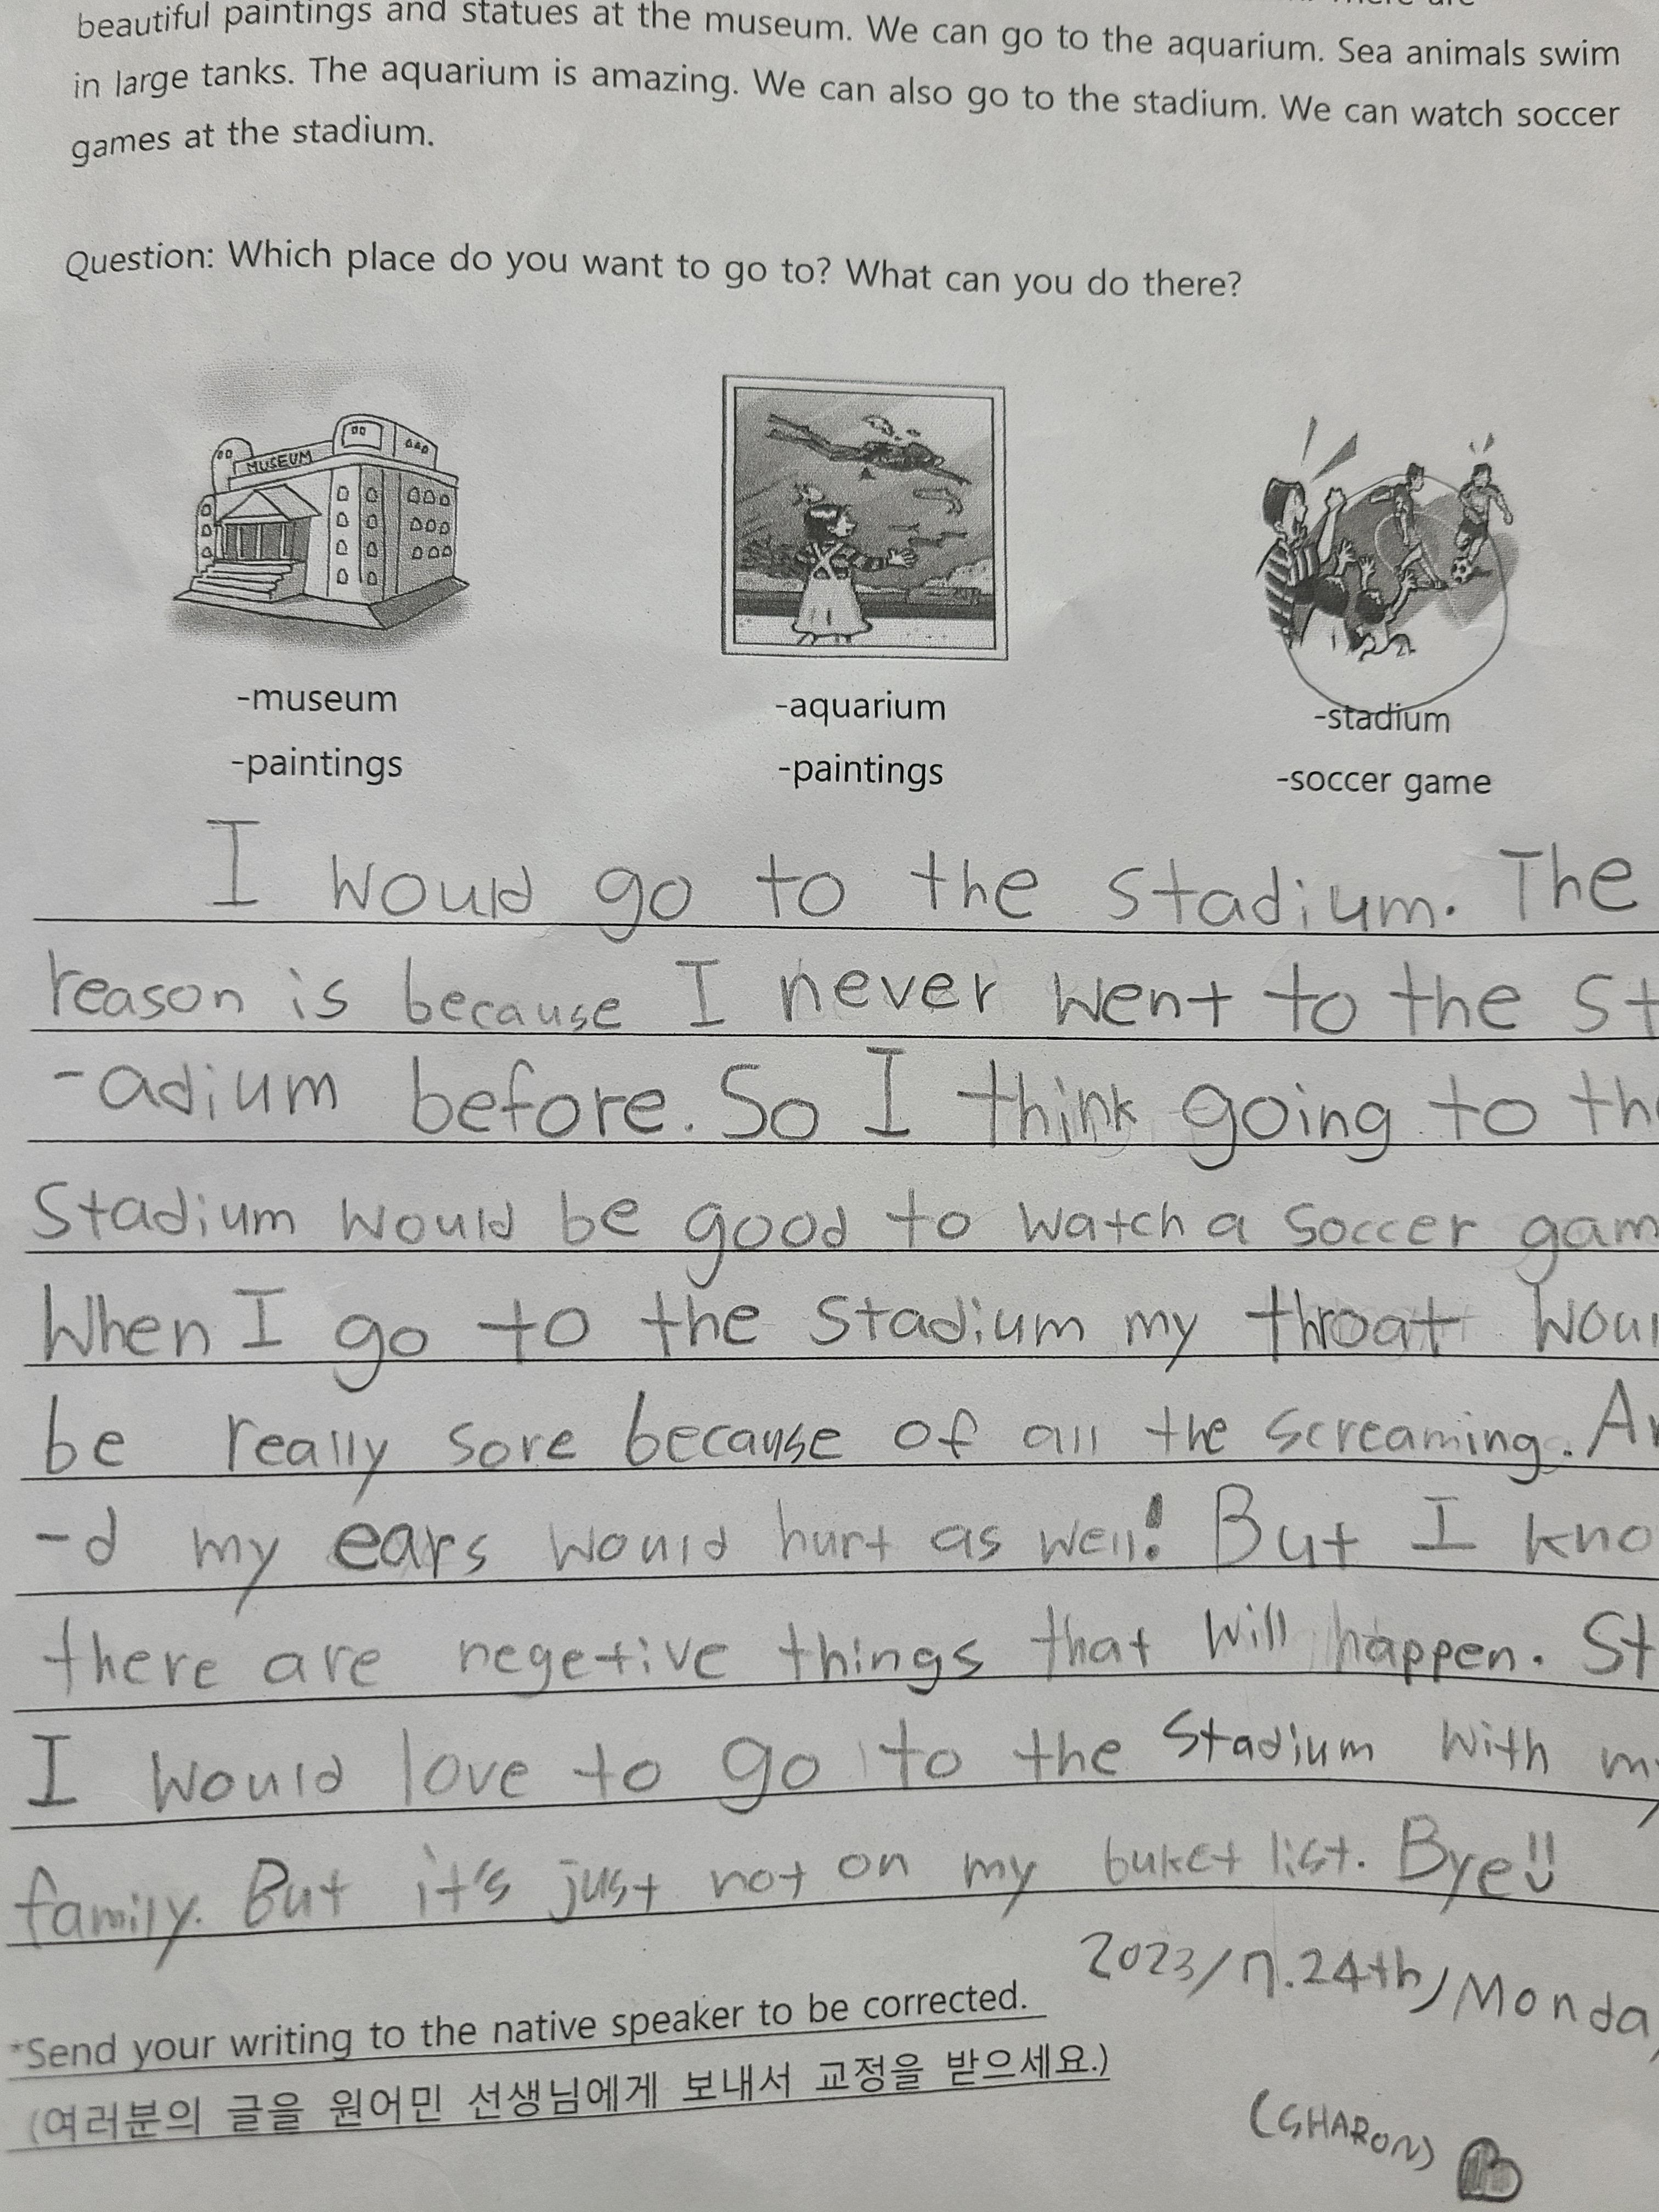 beautiful paintings and statues at the museum. We can go to the aquarium. Sea animals swim
in large tanks. The aquarium is amazing. We can also go to the stadium. We can watch soccer
games at the stadium.
Question: Which place do you want to go to? What can you do there?
MUSEUM
-museum
-aquarium
-stadium
-paintings
-paintings
-soccer game
I would go to the stadium. The
reason is because I never went to the st
-adium before. So I think going to the
stadium would be good to watch a soccer gam
When I go to the stadium my throat woul
be really sore because of all the screaming. An
-d my ears would hurt as well! But I kno
there are negetive things that will happen. St
I would love to go to the stadium with my
family. But it's just not on my buket list. Bye!!
2023/7.24th/Monda
*Send your writing to the native speaker to be corrected.
(여러분의 글을 원어민 선생님에게 보내서 교정을 받으세요.)
(SHARON)